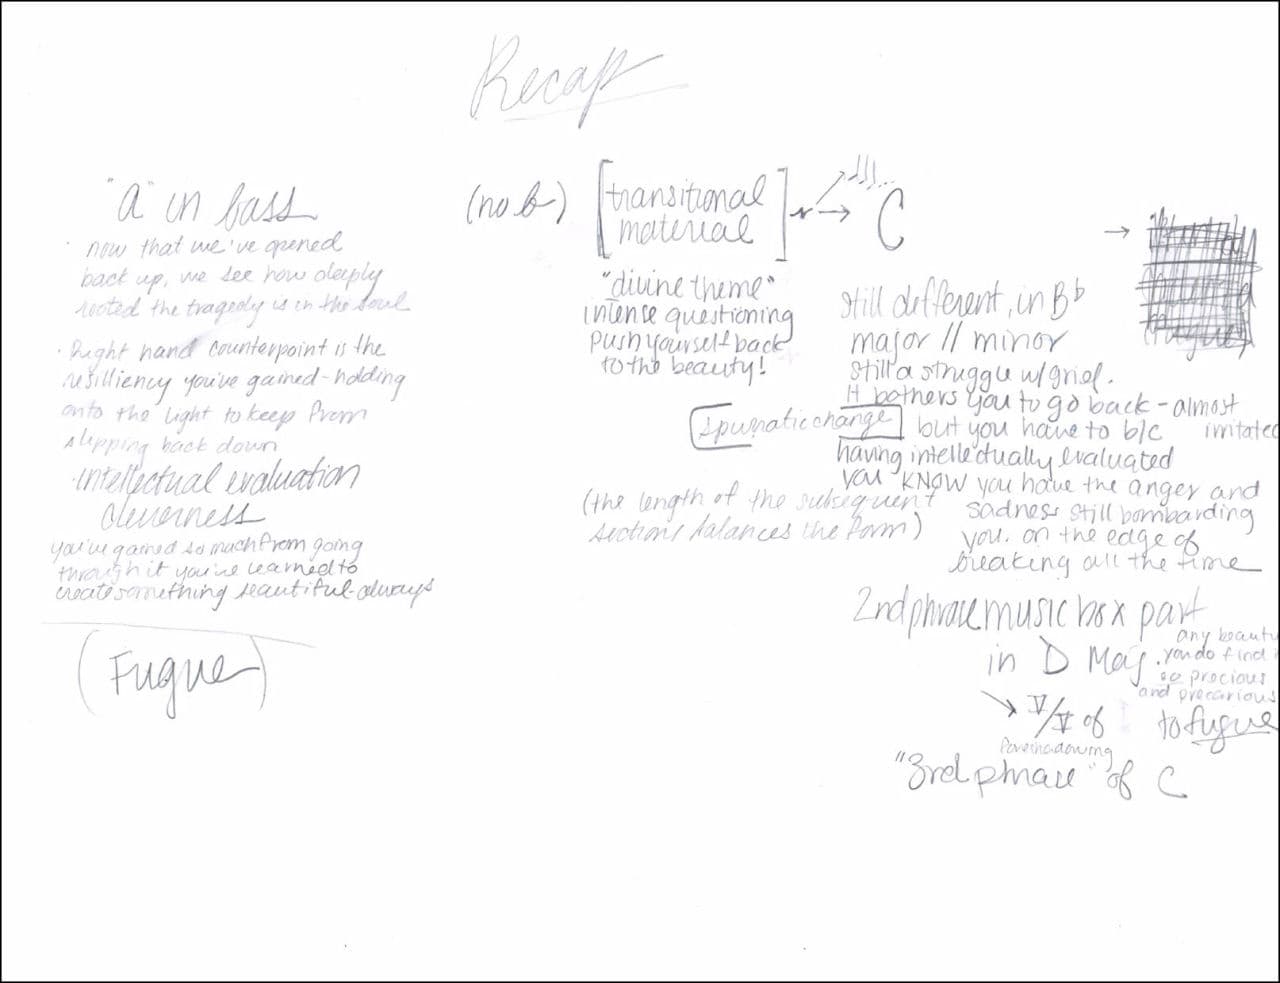 Recap
"a" in bass
· now that we've opened
back up, we see how deeply
rooted the tragedy is in the soul
· Right hand counterpoint is the
resilliency you've gained-holding
onto the light to keep from
slipping back down
· intellectual evaluation
cleverness
you've gained so much from going
through it you've learned to
create something beautiful-always
(Fugue)
(no b)
[transitional
material]
"divine theme"
intense questioning
push yourself back
to the beauty!
→ C
still different, in Bb
major // minor
still a struggle w/ grief.
it bothers you to go back - almost
irritated
but you have to b/c
having intellectually evaluated
you KNOW you have the anger and
sadness still bombarding
you. on the edge of
breaking all the time
change
(the length of the subsequent
sections balances the form)
2nd phrase music box part
in D Maj.
any beauty
you do find
so precious
and precarious
→ V/V of
to fugue
foreshadowing
"3rd phrase" of C
→